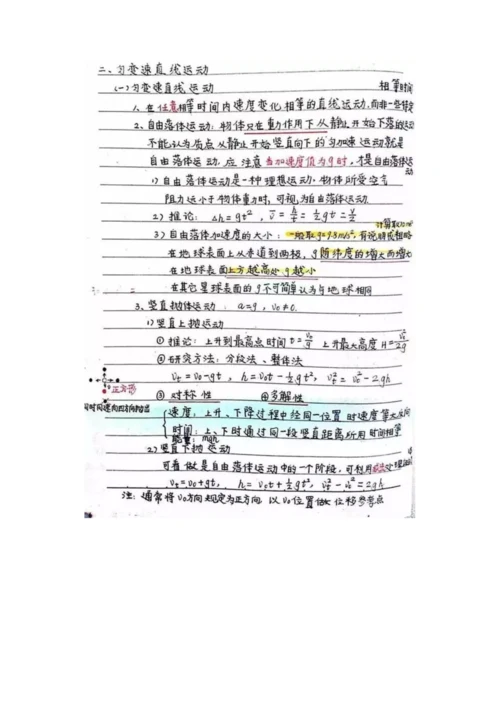 二、匀变速直线运动
(一)匀变速直线运动 相等时间
1、在任意相等时间内速度变化相等的直线运动,而非一些特定
2、自由落体运动:物体只在重力作用下从静止开始下落的运动
不能认为质点从静止开始竖直向下的匀加速运动就是
自由落体运动,应注意当加速度值为g时,才是自由落体运动
1)自由落体运动是一种理想运动。物体所受空气
阻力远小于物体重力时,可视为自由落体运动
2)推论:Δh=gt², v̄=h/t=½gt=v/2
计算取10m/s²
3)自由落体加速度的大小:一般取g=9.8m/s²,有说明或粗略
在地球表面上从赤道到两极,g随纬度的增大而增大
在地球表面上方越高处g越小
在其它星球表面的g不可简单认为与地球相同
3、竖直抛体运动:a=g,v₀≠0.
1)竖直上抛运动
①推论:上升到最高点时间t=v₀/g 上升最大高度H=v₀²/2g
②研究方法:分段法、整体法
vt=v₀-gt, h=v₀t-½gt², vt²=v₀²-2gh
正方形
③对称性 ④多解性
同时同速向四方向抛出
速度:上升、下降过程中经同一位置时速度等大反向
时间:上、下时通过同一段竖直距离所用时间相等
能量:mgh
2)竖直下抛运动
可看做是自由落体运动中的一个阶段,可利用
vt=v₀+gt, h=v₀t+½gt², vt²-v₀²=2gh
注:通常将v₀方向规定为正方向,以v₀位置做位移参考点